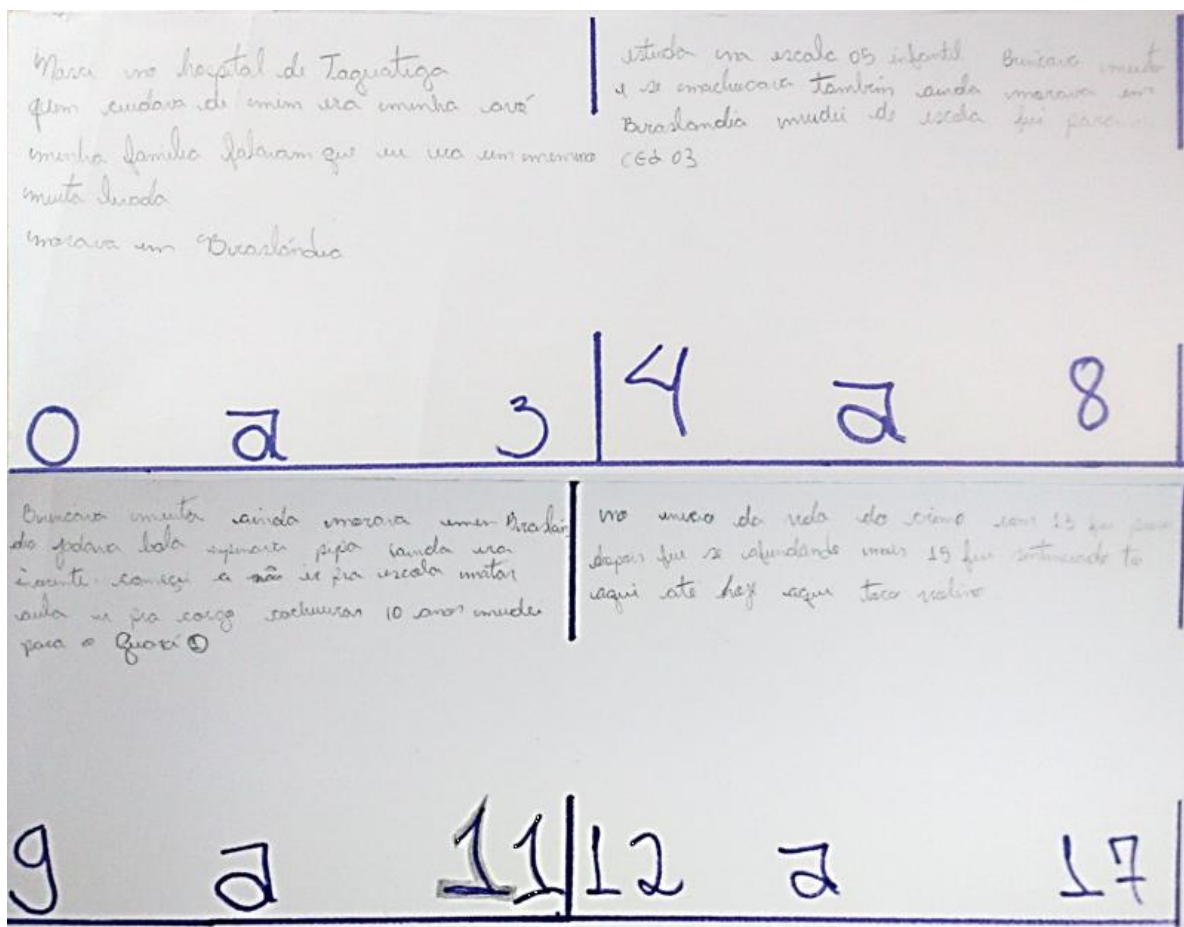 Nasci no hospital de Taguatiga
quem cuidava de mim era minha avó
minha família falavam que eu era um menino
muito levado
morava em Brazlândia
0 a 3
estuda em escala 05 infantil Brincava muito
e se machucava também ainda morava em
Brazlandia mudei de escola fui para
CEd 03
4 a 8
Brincava muito ainda morava em Brazlân
dia jodava bola pipa ainda era
inosente começei a não ir pra escola matar
aula ir pra corgo 10 anos mudei
para o Guará ①
9 a 11
no da vida do crime com 13 fui
depois fui se afundando mais 15 fui to
aqui até hoje aqui toco violino
12 a 17